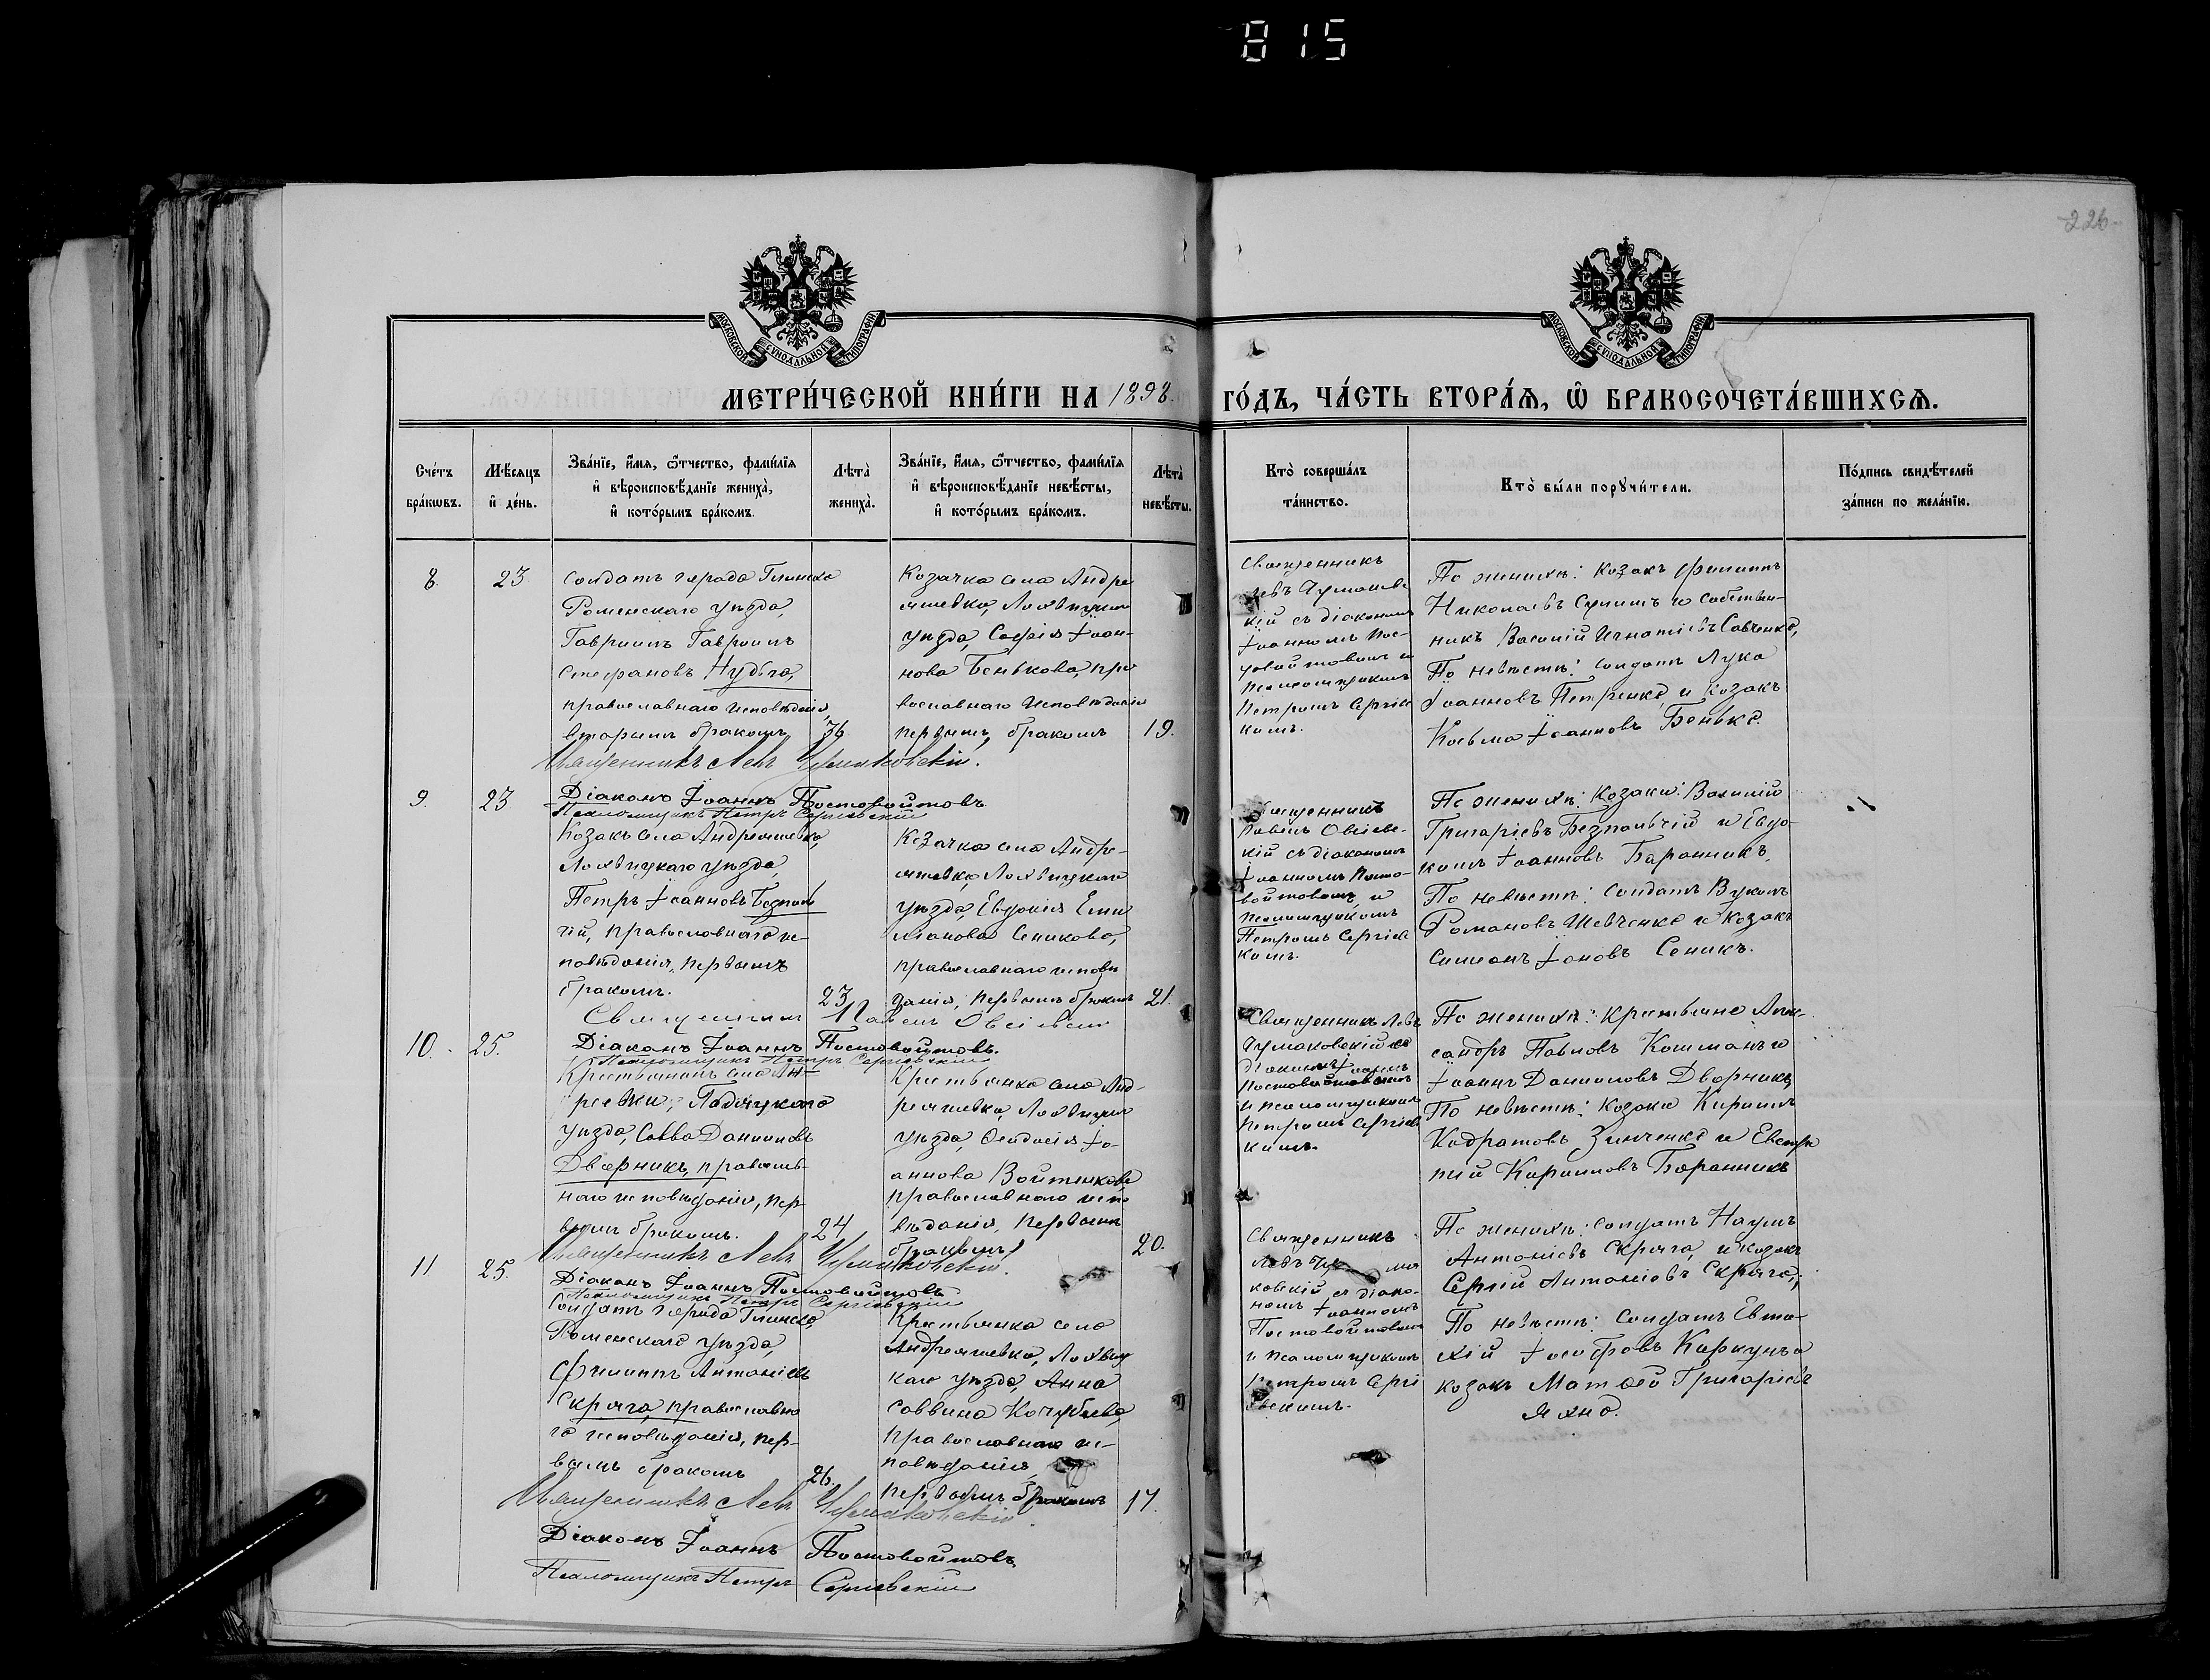 815
226
МОСКОВСКОЙ СѴНОДАЛЬНОЙ ТИПОГРАФІИ
МОСКОВСКОЙ СѴНОДАЛЬНОЙ ТИПОГРАФІИ
МЕТРИ́ЧЕСКОЙ КНИ́ГИ НА 1898 ГО́ДЪ, ЧА́СТЬ ВТОРА́Ѧ, Ѿ БРАКОСОЧЕТА́ВШИХСѦ.
Сче́тъ
бра́кѡвъ.
Мѣ́сяцъ
и҆ де́нь.
Зва́нїе, и҆́мя, ѻ҆́тчество, фами́лїя
и҆ вѣроисповѣ́данїе жениха̀,
и҆ кото́рымъ бра́комъ.
Лѣта̀
жениха̀.
Зва́нїе, и҆́мя, ѻ҆́тчество, фами́лїя
и҆ вѣроисповѣ́данїе невѣ́сты,
и҆ кото́рымъ бра́комъ.
Лѣта̀
невѣ́сты.
Кто̀ соверша́лъ
та́инство.
Кто̀ бы́ли порꙋчи́тели.
По́дпись свидѣ́телей
за́писи по жела́нїю.
8.
23.
Солдатъ города Глинска
Роменскаго уѣзда,
Гавріилъ Гавріилъ
Стефановъ Нудьга,
православнаго исповѣданія,
вторымъ бракомъ
36
Козачка села Андре
яшевка, Лохвицкаго
уѣзда, Софія Іоан-
нова Бенькова, пра
вославнаго исповѣданія
первымъ бракомъ
19.
Священникъ
Левъ Чумаковс
кій съ діакономъ
Іоанномъ Пос-
товойтовымъ и
псаломщикомъ
Петромъ Сергіев
кимъ.
По женихѣ: козакъ Филиппъ
Николаевъ и собствен-
никъ Василій Игнатіевъ Савченко,
По невѣстѣ: солдатъ Лука
Іоанновъ Петренко, и козакъ
Косьма Іоанновъ Бенько.
Священникъ Левъ Чумаковскій.
Діаконъ Іоаннъ Постовойтовъ
Псаломщикъ Петръ Сергіевскій
9.
23
Козакъ села Андреяшевка,
Лохвицкаго уѣзда,
Петръ Іоанновъ Безпаль
чій, православнаго ис-
повѣданія, первымъ
бракомъ.
23
Козачка села Андре-
яшевка, Лохвицкаго
уѣзда, Евдокія Еми
ліанова Сеникова,
православнаго исповѣ
данія, первымъ бракомъ
21.
Священникъ
Павелъ Овсіевс-
кій съ діакономъ
Іоанномъ Посто-
войтовымъ, и
псаломщикомъ
Петромъ Сергіевс
кимъ.
По женихѣ: козаки: Василій
Григоріевъ Безпальчій и Евдо-
кимъ Іоанновъ Баранникъ,
По невѣстѣ: солдатъ Вуколъ
Романовъ Шевченко и козакъ
Симеонъ Іоновъ Сеникъ.
Священникъ Павелъ Овсіевскій
Діаконъ Іоаннъ Постовойтовъ.
Псаломщикъ Петръ Сергіевскій
10.
25.
Крестьянинъ села Ан-
реевки, Лохвицкаго
уѣзда, Савва Даниловъ
Дворникъ, православ-
наго исповѣданія, пер-
вымъ бракомъ.
24
Крестьянка села Анд-
реяшевка, Лохвицкаго
уѣзда, Феодосія Іо-
аннова Войтенкова,
православнаго испо
вѣданія, первымъ
бракомъ,
20.
Священникъ Левъ
Чумаковскій съ
діакономъ Іоанномъ
Постовойтовымъ
и псаломщикомъ
Петромъ Сергіевс
кимъ.
По женихѣ: крестьяне Алек-
сандръ Павловъ Кошманъ и
Іоаннъ Даниловъ Дворникъ,
По невѣстѣ: козаки Кириллъ
Кодратовъ Зинченко и Евстра
тій Карповъ Баранникъ
Священникъ Левъ Чумаковскій.
Діаконъ Іоаннъ Постовойтовъ
Псаломщикъ Петръ Сергіевскій
11
25.
Солдатъ города Глинска,
Роменскаго уѣзда,
Филиппъ Антоніевъ
Скряга, православна
го исповѣданія, пер-
вымъ бракомъ
26.
Крестьянка села
Андреяшевка, Лохвиц
каго уѣзда, Анна
Саввина Кочубіева,
православнаго ис-
повѣданія,
первымъ бракомъ
17.
Священникъ
Левъ Чу ма
ковскій съ діако-
номъ Іоанномъ
Постовойтовымъ
и псаломщикомъ
Петромъ Сергі
евскимъ.
По женихѣ: солдатъ Наумъ
Антоніевъ Скряга, и козакъ
Сергій Антоніевъ Скряга,
По невѣстѣ: солдатъ Евти-
хій Іосифовъ и
козакъ Матѳей Григоріевъ
Яхно.
Священникъ Левъ Чумаковскій
Діаконъ Іоаннъ Постовойтовъ
Псаломщикъ Петръ Сергіевскій